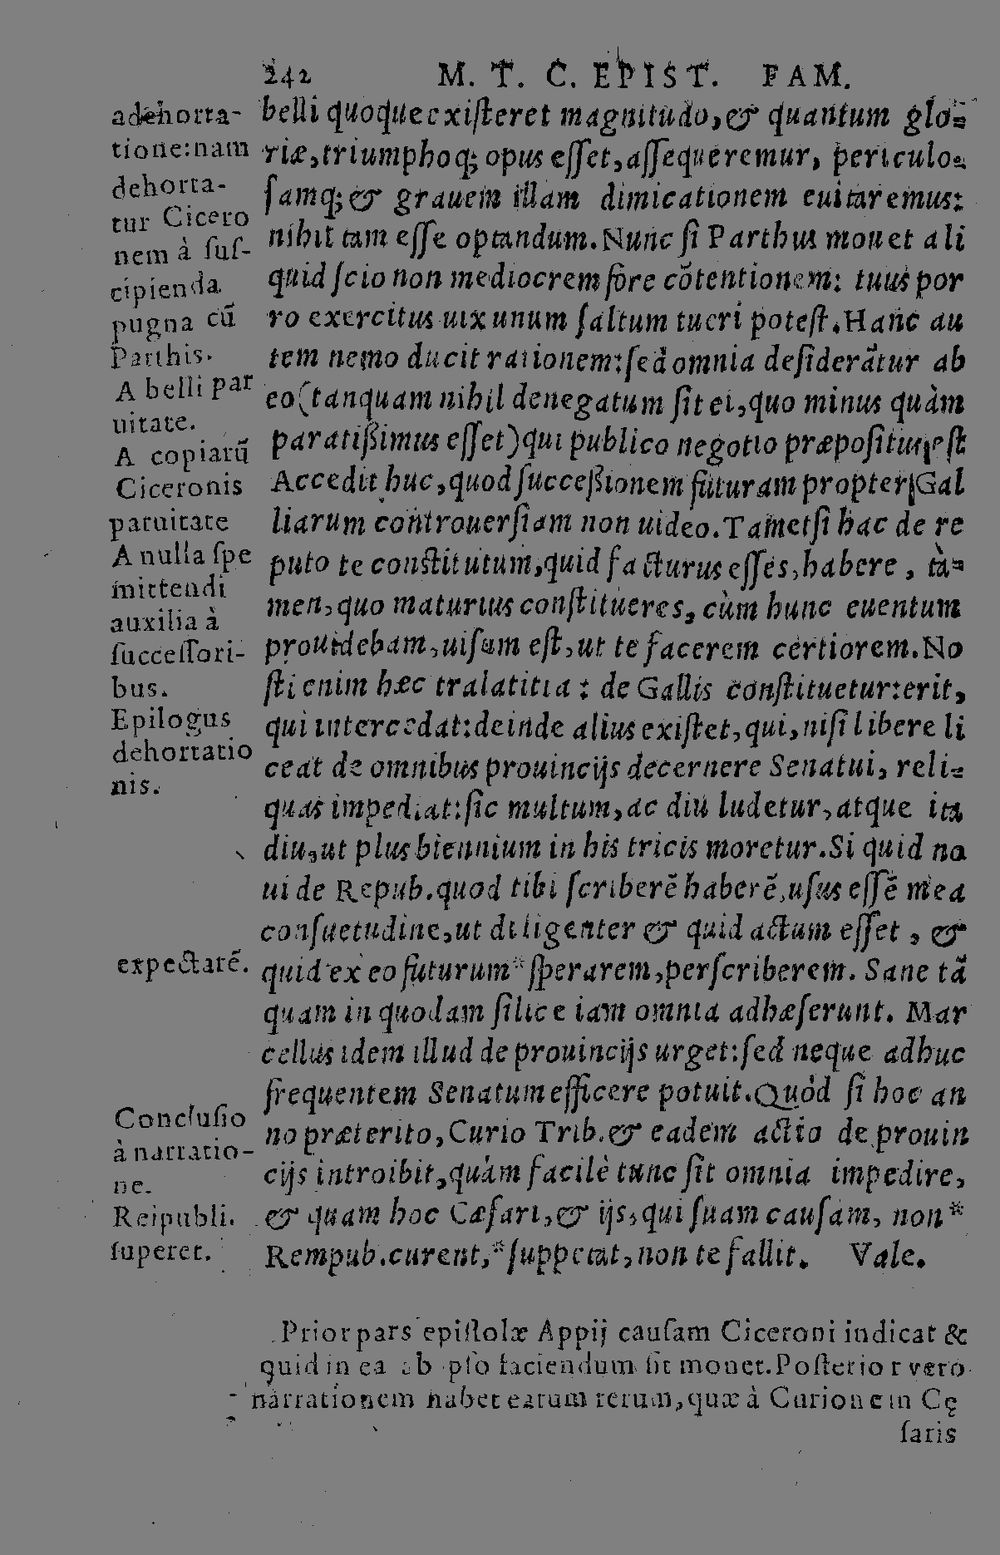 242 M. T. C. EPIST. FAM.
belli quoque existeret magnitudo, & quantum glo-
riæ, triumphoq; opus esset, assequeremur, periculo-
samq; & grauem illam dimicationem euitaremus:
nihil tam esse optandum. Nunc si Parthus mouet ali
quid scio non mediocrem fore cõtentionem: tuus por
ro exercitus uix unum saltum tueri potest. Hanc au
tem nemo ducit rationem: sed omnia desiderãtur ab
eo (tanquam nihil denegatum sit ei, quo minus quàm
paratißimus esset) qui publico negotio præpositus est
Accedit huc, quod succeßionem futuram propter Gal
liarum controuersiam non uideo. Tametsi hac de re
puto te constitutum, quid facturus esses, habere, tà-
men, quo maturius constitueres, cùm hunc euentum
prouidebam, uisum est, ut te facerem certiorem. No
sti enim hæc tralatitia: de Gallis constituetur: erit,
qui intercedat: deinde alius existet, qui, nisi libere li
ceat de omnibus prouincijs decernere Senatui, reli-
quas impediat: sic multum, ac diu ludetur, atque ita
diu, ut plus biennium in his tricis moretur. Si quid no
ui de Repub. quod tibi scriberẽ haberẽ, usus essẽ mea
consuetudine, ut diligenter & quid actum esset, &
quid ex eo futurum* sperarem, perscriberem. Sane tã
quam in quodam silice iam omnia adhæserunt. Mar
cellus idem illud de prouincijs urget: sed neque adhuc
frequentem Senatum efficere potuit. Quòd si hoc an
no præterito, Curio Trib. & eadem actio de prouin
cijs introibit, quàm facilè tunc sit omnia impedire,
& quam hoc Cæsari, & ijs, qui suam causam, non*
Rempub. curent, *suppetat, non te fallit. Vale.
adehorta-
tione: nam
dehorta-
tur Cicero
nem à sus-
cipienda
pugna cũ
Parthis.
A belli par
uitate.
A copiarũ
Ciceronis
paruitate
A nulla spe
mittendi
auxilia à
successori-
bus.
Epilogus
dehortatio
nis.
expectarẽ.
Conclusio
à narratio-
ne.
Reipubli.
superet.
Prior pars epistolæ Appij causam Ciceroni indicat &
quid in ea ab ipso faciendum sit monet. Posterior vero
narrationem habet earum rerum, quæ à Curione in Cę
saris